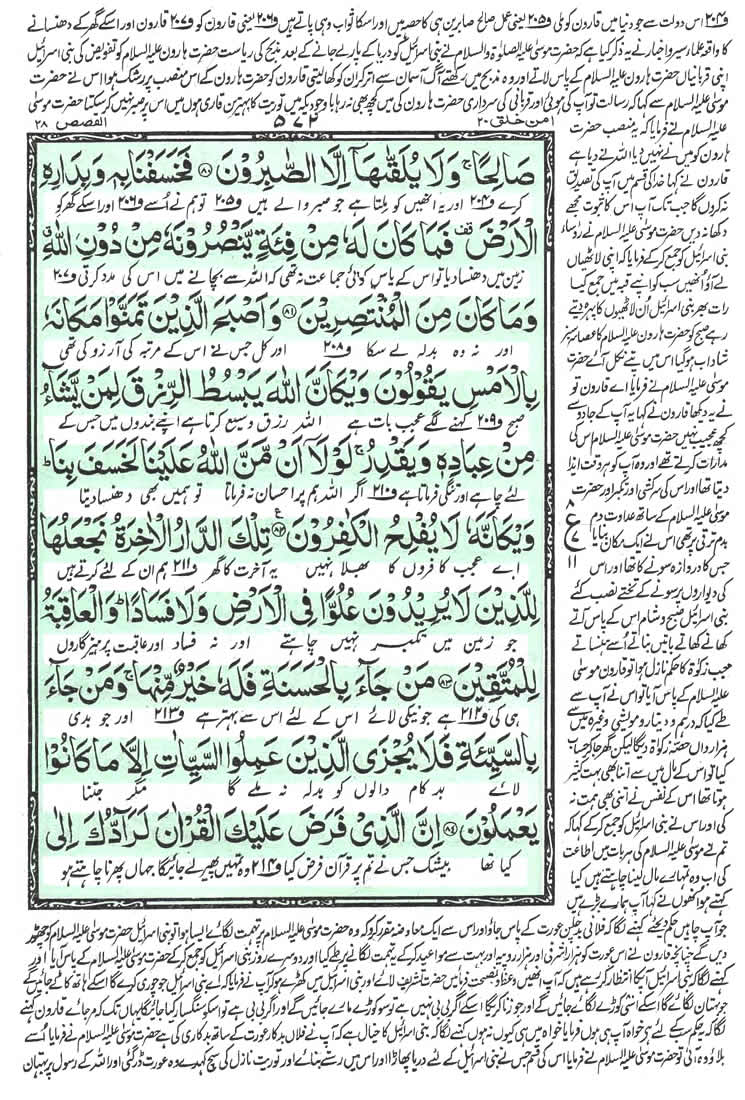 و٢٠٤ اس دولت سے جو دنیا میں قارون کو ملی و٢٠٥ یعنی عمل صالح صابرین ہی کا حصہ ہیں اور اسکا ثواب وہی پاتے ہیں و٢٠٦ یعنی قارون کو و٢٠٧ قارون اور اسکے گھر کے دھنسانے
کا واقعہ علمائے سیر و اخبار نے یہ ذکر کیا ہے کہ حضرت موسیٰ علیہ الصلوٰۃ والسلام نے بنی اسرائیل کو دریا کے پار لے جانے کے بعد مذبح کی ریاست حضرت ہارون علیہ السلام کو تفویض کی بنی اسرائیل
اپنی قربانیاں حضرت ہارون علیہ السلام کے پاس لاتے اور وہ مذبح میں رکھتے آگ آسمان سے اتر کر ان کو کھا لیتی قارون کو حضرت ہارون کے اس منصب پر رشک ہوا اس نے حضرت
موسیٰ علیہ السلام سے کہا کہ رسالت تو آپ کی ہوئی اور قربانی کی سرداری حضرت ہارون کی میں کچھ بھی نہ رہا باوجودیکہ میں توریت کا بہترین قاری ہوں میں اس پر صبر نہیں کر سکتا حضرت موسیٰ
امن خلق ٢٠
٥٧٢
القصص ٢٨
صَالِحًا ۚ وَلَا يُلَقّٰىهَآ اِلَّا الصّٰبِرُوْنَ ﴿۸۰﴾ فَخَسَفْنَا بِهٖ وَبِدَارِهِ
کرے و٢٠٤ اور یہ انھیں کو ملتا ہے جو صبر والے ہیں و٢٠٥ تو ہم نے اُسے و٢٠٦ اور اسکے گھر کو
الْاَرْضَ ۫ فَمَا كَانَ لَهٗ مِنْ فِئَةٍ يَّنْصُرُوْنَهٗ مِنْ دُوْنِ اللّٰهِ ۗ
زمین میں دھنسا دیا تو اس کے پاس کوئی جماعت نہ تھی کہ اللہ سے بچانے میں اس کی مدد کرتی و٢٠٧
وَمَا كَانَ مِنَ الْمُنْتَصِرِيْنَ ﴿۸۱﴾ وَاَصْبَحَ الَّذِيْنَ تَمَنَّوْا مَكَانَهٗ
اور نہ وہ بدلہ لے سکا و٢٠٨ اور کل جس نے اس کے مرتبہ کی آرزو کی تھی
بِالْاَمْسِ يَقُوْلُوْنَ وَيْكَاَنَّ اللّٰهَ يَبْسُطُ الرِّزْقَ لِمَنْ يَّشَآءُ
صبح و٢٠٩ کہنے لگے عجب بات ہے اللہ رزق وسیع کرتا ہے اپنے بندوں میں جس کے
مِنْ عِبَادِهٖ وَيَقْدِرُ ۚ لَوْلَآ اَنْ مَّنَّ اللّٰهُ عَلَيْنَا لَخَسَفَ بِنَا ۭ
لئے چاہے اور تنگی فرماتا ہے و٢١٠ اگر اللہ ہم پر احسان نہ فرماتا تو ہمیں بھی دھنسا دیتا
وَيْكَاَنَّهٗ لَا يُفْلِحُ الْكٰفِرُوْنَ ﴿۸۲﴾ تِلْكَ الدَّارُ الْاٰخِرَةُ نَجْعَلُهَا
اے عجب کافروں کا بھلا نہیں یہ آخرت کا گھر و٢١١ ہم ان کے لئے کرتے ہیں
لِلَّذِيْنَ لَا يُرِيْدُوْنَ عُلُوًّا فِى الْاَرْضِ وَلَا فَسَادًا ۭ وَالْعَاقِبَةُ
جو زمین میں تکبر نہیں چاہتے اور نہ فساد اور عاقبت پرہیزگاروں
لِلْمُتَّقِيْنَ ﴿۸۳﴾ مَنْ جَآءَ بِالْحَسَنَةِ فَلَهٗ خَيْرٌ مِّنْهَا ۚ وَمَنْ جَآءَ
ہی کی و٢١٢ ہے جو نیکی لائے اس کے لئے اس سے بہتر ہے و٢١٣ اور جو بدی
بِالسَّيِّئَةِ فَلَا يُجْزَى الَّذِيْنَ عَمِلُوا السَّيِّاٰتِ اِلَّا مَا كَانُوْا
لائے بد کام والوں کو بدلہ نہ ملے گا مگر جتنا
يَعْمَلُوْنَ ﴿۸۴﴾ اِنَّ الَّذِىْ فَرَضَ عَلَيْكَ الْقُرْاٰنَ لَرَآدُّكَ اِلٰى
کیا تھا بیشک جس نے تم پر قرآن فرض کیا و٢١٤ وہ تمہیں پھیر لے جائیگا جہاں پھرنا چاہتے ہو
علیہ السلام نے فرمایا کہ یہ منصب حضرت
ہارون کو میں نے نہیں دیا اللہ نے دیا ہے
قارون نے کہا خدا کی قسم میں آپ کی تصدیق
نہ کروں گا جب تک آپ اس کا ثبوت مجھے
دکھا نہ دیں حضرت موسیٰ علیہ السلام نے رؤساء
بنی اسرائیل کو جمع کر کے فرمایا کہ اپنی لاٹھیاں
لے آؤ انھیں سب کو اپنے قبہ میں جمع کیا
رات بھر بنی اسرائیل ان لاٹھیوں کا پہرہ دیتے
رہے صبح کو حضرت ہارون علیہ السلام کا عصا سرسبز
شاداب ہوگیا اس میں پتے نکل آئے حضرت
موسیٰ علیہ السلام نے فرمایا اے قارون تو
نے یہ دیکھا قارون نے کہا یہ آپ کے جادو سے
کچھ عجیب نہیں حضرت موسیٰ علیہ السلام اس کی
مدارات کرتے تھے اور وہ آپ کو ہر وقت ایذا
دیتا تھا اور اس کی سرکشی اور تکبر اور حضرت
موسیٰ علیہ السلام کے ساتھ عداوت دم
بدم ترقی پر تھی اس نے ایک مکان بنایا
جس کا دروازہ سونے کا تھا اور اس
کی دیواروں پر سونے کے تختے نصب کئے
بنی اسرائیل صبح و شام اس کے پاس آتے
کھانے کھاتے باتیں بناتے اُسے ہنساتے
جب زکوٰۃ کا حکم نازل ہوا تو قارون موسیٰ
علیہ السلام کے پاس آیا تو اس نے آپ سے
طے کیا کہ درہم و دینار و مویشی وغیرہ میں
ہزارواں حصہ زکوٰۃ دیگا لیکن گھر جا کر حساب
کیا تو اس کے مال میں سے اتنا بھی بہت کثیر
ہوتا تھا اس کے نفس نے اتنی بھی ہمت نہ
کی اور اس نے بنی اسرائیل کو جمع کر کے کہا کہ
تم نے موسیٰ علیہ السلام کی ہر بات میں اطاعت
کی اب وہ تمہارے مال لینا چاہتے ہیں کیا
کہتے ہو انھوں نے کہا آپ ہمارے بڑے ہیں
٨
ع
٧
١١
جو آپ چاہیں حکم دیجئے کہنے لگا کہ فلانی بدچلن عورت کے پاس جاؤ اور اس سے ایک معاوضہ مقرر کرو کہ وہ حضرت موسیٰ علیہ السلام پر تہمت لگائے ایسا ہوا تو بنی اسرائیل حضرت موسیٰ علیہ السلام کو چھوڑ
دیں گے چنانچہ قارون نے اس عورت کو ہزار اشرفی اور ہزار روپیہ اور بہت سے مواعید کر کے یہ تہمت لگانے پر طے کیا اور دوسرے روز بنی اسرائیل کو جمع کر کے حضرت موسیٰ علیہ السلام کے پاس آیا اور
کہنے لگا کہ بنی اسرائیل آپ کا انتظار کر رہے ہیں کہ آپ انھیں وعظ و نصیحت فرمائیں حضرت تشریف لائے اور بنی اسرائیل میں کھڑے ہو کر آپ نے فرمایا کہ اے بنی اسرائیل جو چوری کرے گا اسکے ہاتھ کاٹے جائیں گے
جو بہتان لگائے گا اسکے اسّی کوڑے لگائے جائیں گے اور جو زنا کریگا اسکے اگر بی بی نہیں ہے تو سو کوڑے مارے جائیں گے اور اگر بی بی ہے تو اسکو سنگسار کیا جائیگا یہاں تک کہ مر جائے قارون کہنے
لگا کہ یہ حکم سب کے لئے ہے خواہ آپ ہی ہوں فرمایا خواہ میں ہی کیوں نہ ہوں کہنے لگا کہ بنی اسرائیل کا خیال ہے کہ آپ نے فلاں بدکار عورت کے ساتھ بدکاری کی ہے حضرت موسیٰ علیہ السلام نے فرمایا اُسے
بلاؤ وہ آئی تو حضرت موسیٰ علیہ السلام نے فرمایا اس کی قسم جس نے بنی اسرائیل کے لئے دریا پھاڑا اور اس میں رستے بنائے اور توریت نازل کی سچ کہہ دے وہ عورت ڈر گئی اور اللہ کے رسول پر بہتان